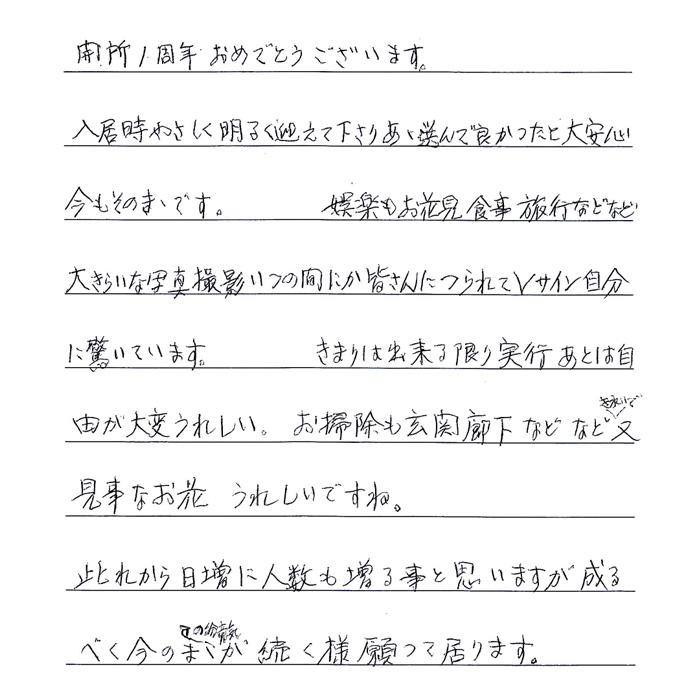 開所1周年おめでとうございます。
入居時やさしく明るく迎えて下さりあゝ選んで良かつたと大安心
今もそのまゝです。 娯楽もお花見 食事 旅行などなど
大きらいな写真撮影いつの間にか皆さんにつられてVサイン自分
に驚いています。 きまりは出来る限り実行あとは自
由が大変うれしい。 お掃除も玄関廊下などなどきれいで又
見事なお花 うれしいですね。
此れから日増に人数も増る事と思いますが成る
べく今のまゝの雰囲気が続く様願つて居ります。